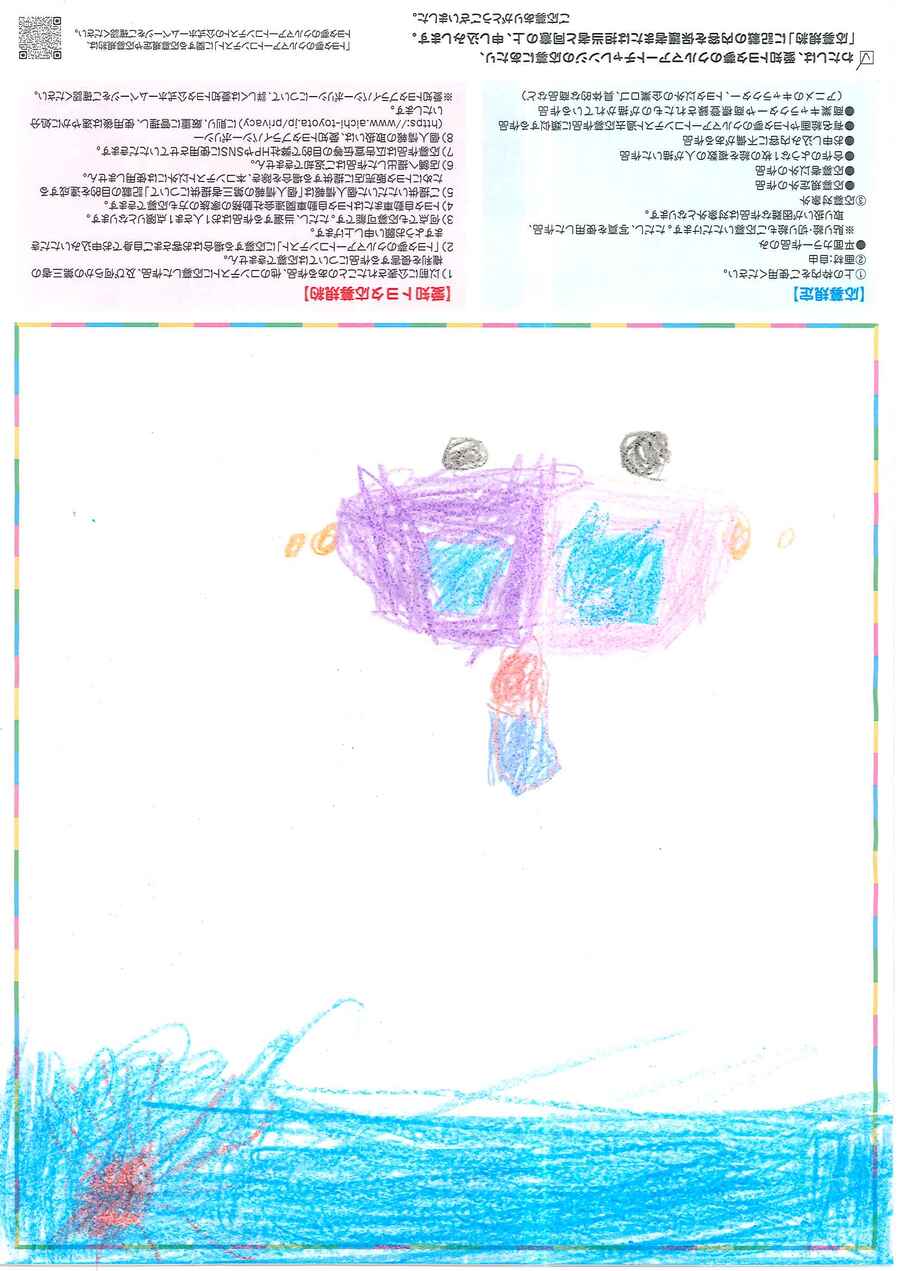 【応募規定】
①上の枠内をご使用ください。
②画材:自由
●平面カラー作品のみ
※貼り絵・切り絵もご応募いただけます。ただし、写真を使用した作品、
取扱いが困難な作品は対象外となります。
③応募対象外
●応募規定外の作品
●応募者以外の作品
●合作のような1枚の絵を複数の人が描いた作品
●お申し込み内容に不備がある作品
●有名絵画やトヨタ夢のクルマアートコンテスト過去応募作品に類似する作品
●商業キャラクターや商標登録されたものが描かれている作品
(アニメのキャラクター、トヨタ以外の企業ロゴ、具体的な商品など)
【愛知トヨタ応募規約】
1)以前に公表されたことのある作品、他のコンテストに応募した作品、及び何らかの第三者の
権利を侵害する作品については応募できません。
2)「トヨタ夢のクルマアートコンテスト」に応募する場合はお客さまご自身でお申込みいただき
ますようお願い申し上げます。
3)何点でも応募可能です。ただし、当選する作品はお1人さま1点限りとなります。
4)トヨタ自動車またはトヨタ自動車関連会社勤務の家族の方も応募できます。
5)ご提供いただいた個人情報は「個人情報の第三者提供について」記載の目的を達成する
ためにトヨタ販売店に提供する場合を除き、本コンテスト以外には使用しません。
6)店舗へ提出した作品はご返却できません。
7)応募作品は広告宣伝等の目的で弊社HPやSNSに使用させていただきます。
8)個人情報の取扱いは、愛知トヨタプライバシーポリシー
(https://www.aichi-toyota.jp/privacy)に則り、厳重に管理し、使用後は速やかに処分
いたします。
※愛知トヨタプライバシーポリシーについて、詳しくは愛知トヨタ公式ホームページをご確認ください。
わたしは、愛知トヨタ夢のクルマアートチャレンジの応募にあたり、
「応募規約」に記載の内容を保護者または担当者と同意の上、申し込みします。
ご応募ありがとうございました。
「トヨタ夢のクルマアートコンテスト」に関する応募規定や応募規約は、
トヨタ夢のクルマアートコンテストの公式ホームページをご確認ください。